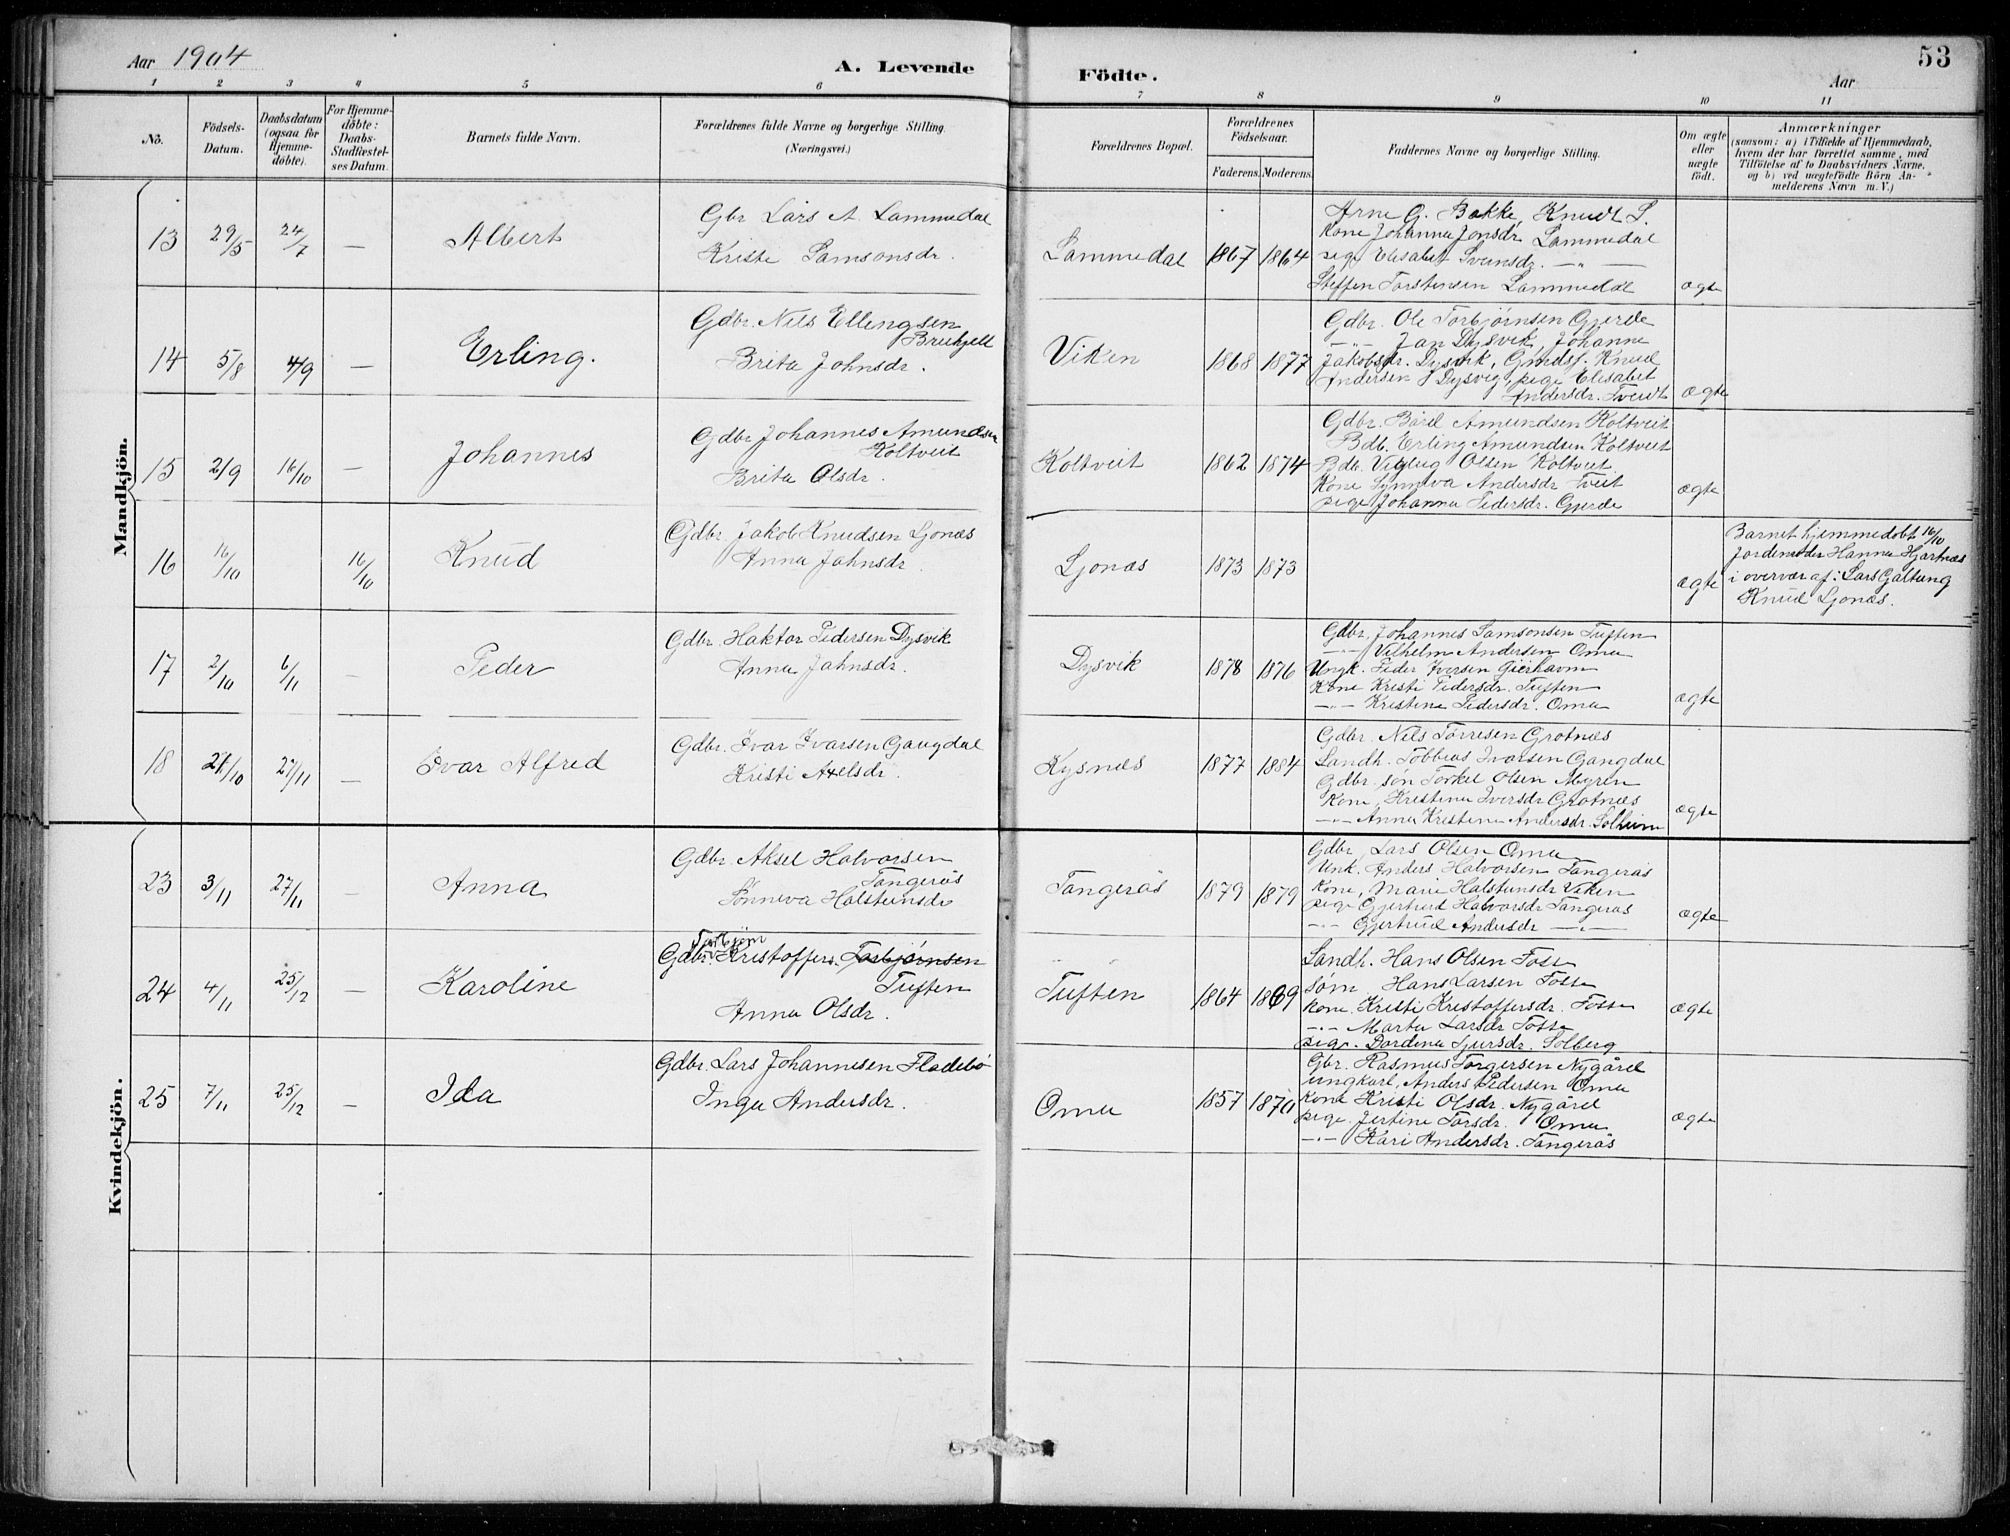 53
Aar 1904
A. Levende Födte.
Aar
1 2 3 4 5 6 7 8 9 10 11
No.
Födsels-Datum.
Daabsdatum (ogsaa for Hjemme-döbte).
For Hjemme-döbte: Daabs-Stadfæstel-ses Datum.
Barnets fulde Navn.
Forældrenes fulde Navne og borgerlige Stilling. (Næringsvei.)
Forældrenes Bopæl.
Forældrenes Födselsaar.
Faderens. Moderens.
Faddernes Navne og borgerlige Stilling.
Om ægte eller uægte födt.
Anmærkninger
(saasom: a) i Tilfælde af Hjemmedaab,
hvem der har forrettet samme, med
Tilföielse af to Daabsvidners Navne,
og b) ved uægtefödte Börn An-
melderens Navn m. V.)
Mandkjön.
13 29/5 24/7 — Albert
Gbr Lars A. Lammedal
Kriste Samsonsdr.
Lammedal 1867 1864
Arne G. Bakke, Knudt L.
Kone Johanna Jonsdr Lammedal
pige Elisabet Svensdr. —"—
Steffen Torstensen Lammedal
ægte
14 5/8 4/9 — Erling.
Gdbr. Nils Ellingsen
Brukjell
Brita Johnsdr.
Viken 1868 1877
Gdbr. Ole Torbjørnsen Gjerde
—"— Jan Dysvik, Johanne
Jakobsdr. Dysvik, Grndsj. Knud
Andersen Dysvig, pige Elisabet
Andersdr. Tveidt
ægte
15 2/9 16/10 — Johannes
Gdbr Johannes Amundsen
Koltveit
Brita Olsdr.
Koltveit 1862 1874
Gdbr. Bård Amundsen Koltveit
Bdb. Erling Amundsen Koltveit
Bdb. Viglug Olsen Koltveit.
Kone Synneva Andersdr Tveit
pige Johanna Pedersdr. Gjerde
ægte
16 16/10 16/10 Knud
Gdbr. Jakob Knudsen Ljonæs
Anna Jahnsdr.
Ljonæs 1873 1873
ægte
Barnet hjemmedøbt 16/10
Jordemoder Hanna Hjartnæs
i overvær af: Lars Galtung
Knud Ljonæs.
17 2/10 6/11 — Peder
Gdbr. Haktor Pedersen Dysvik
Anna Jahnsdr.
Dysvik 1878 1876
Gdbr. Johannes Samsonsen Tuften
—"— Vilhelm Andersen Oma
Ungk. Peder Iversen Gjerhavn
Kone Kristi Pedersdr. Tuften
—"— Kristine Pedersdr. Oma
ægte
18 21/10 27/11 — Ivar Alfred
Gdbr. Ivar Ivarsen Gangdal
Kristi Axelsdr.
Kysnæs 1877 1884
Gdbr. Nils Torresen Grotnæs
Landh. Tobbias Ivarsen Gangdal
Gdbr. søn Torkel Olsen Myren
Kone, Kristina Iversdr Grotnæs
—"— Anna Kristina Andersdr. Solheim
ægte
Kvindekjön.
23 3/11 27/11 — Anna
Gdbr. Aksel Halvorsen
Tangerås
Sønneva Halsteinsdr
Tangerås 1879 1879
Gdbr. Lars Olsen Oma
Unk. Anders Halvorsen Tangerås
Kone, Marie Halsteinsdr Viken
pige Gjertrud Halvorsdr Tangerås
—"— Gjertrud Andersdr —"—
ægte
24 4/11 25/12 — Karoline
Torbjørn
Gdbr. Kristoffers. Torbjørnsen
Tuften
Anna Olsdr.
Tuften 1864 1869
Landh. Hans Olsen Fosse
søn Hans Larsen Fosse
Kone. Kristi Kristoffersdr. Fosse
—"— Marta Larsdr Fosse
pige. Dordena Sjursdr. Solberg
ægte
25 7/11 25/12 — Ida
Gdbr. Lars Johannesen Fladebö
Inga Andersdr.
Oma 1857 1870
Gbr. Rasmus Torgersen Nygård
ungkarl, Anders Pedersen Oma
Kone Kristi Olsdr. Nygård
pige. Jertine Torsdr. Oma
—"— Kari Andersdr. Tangerås
ægte